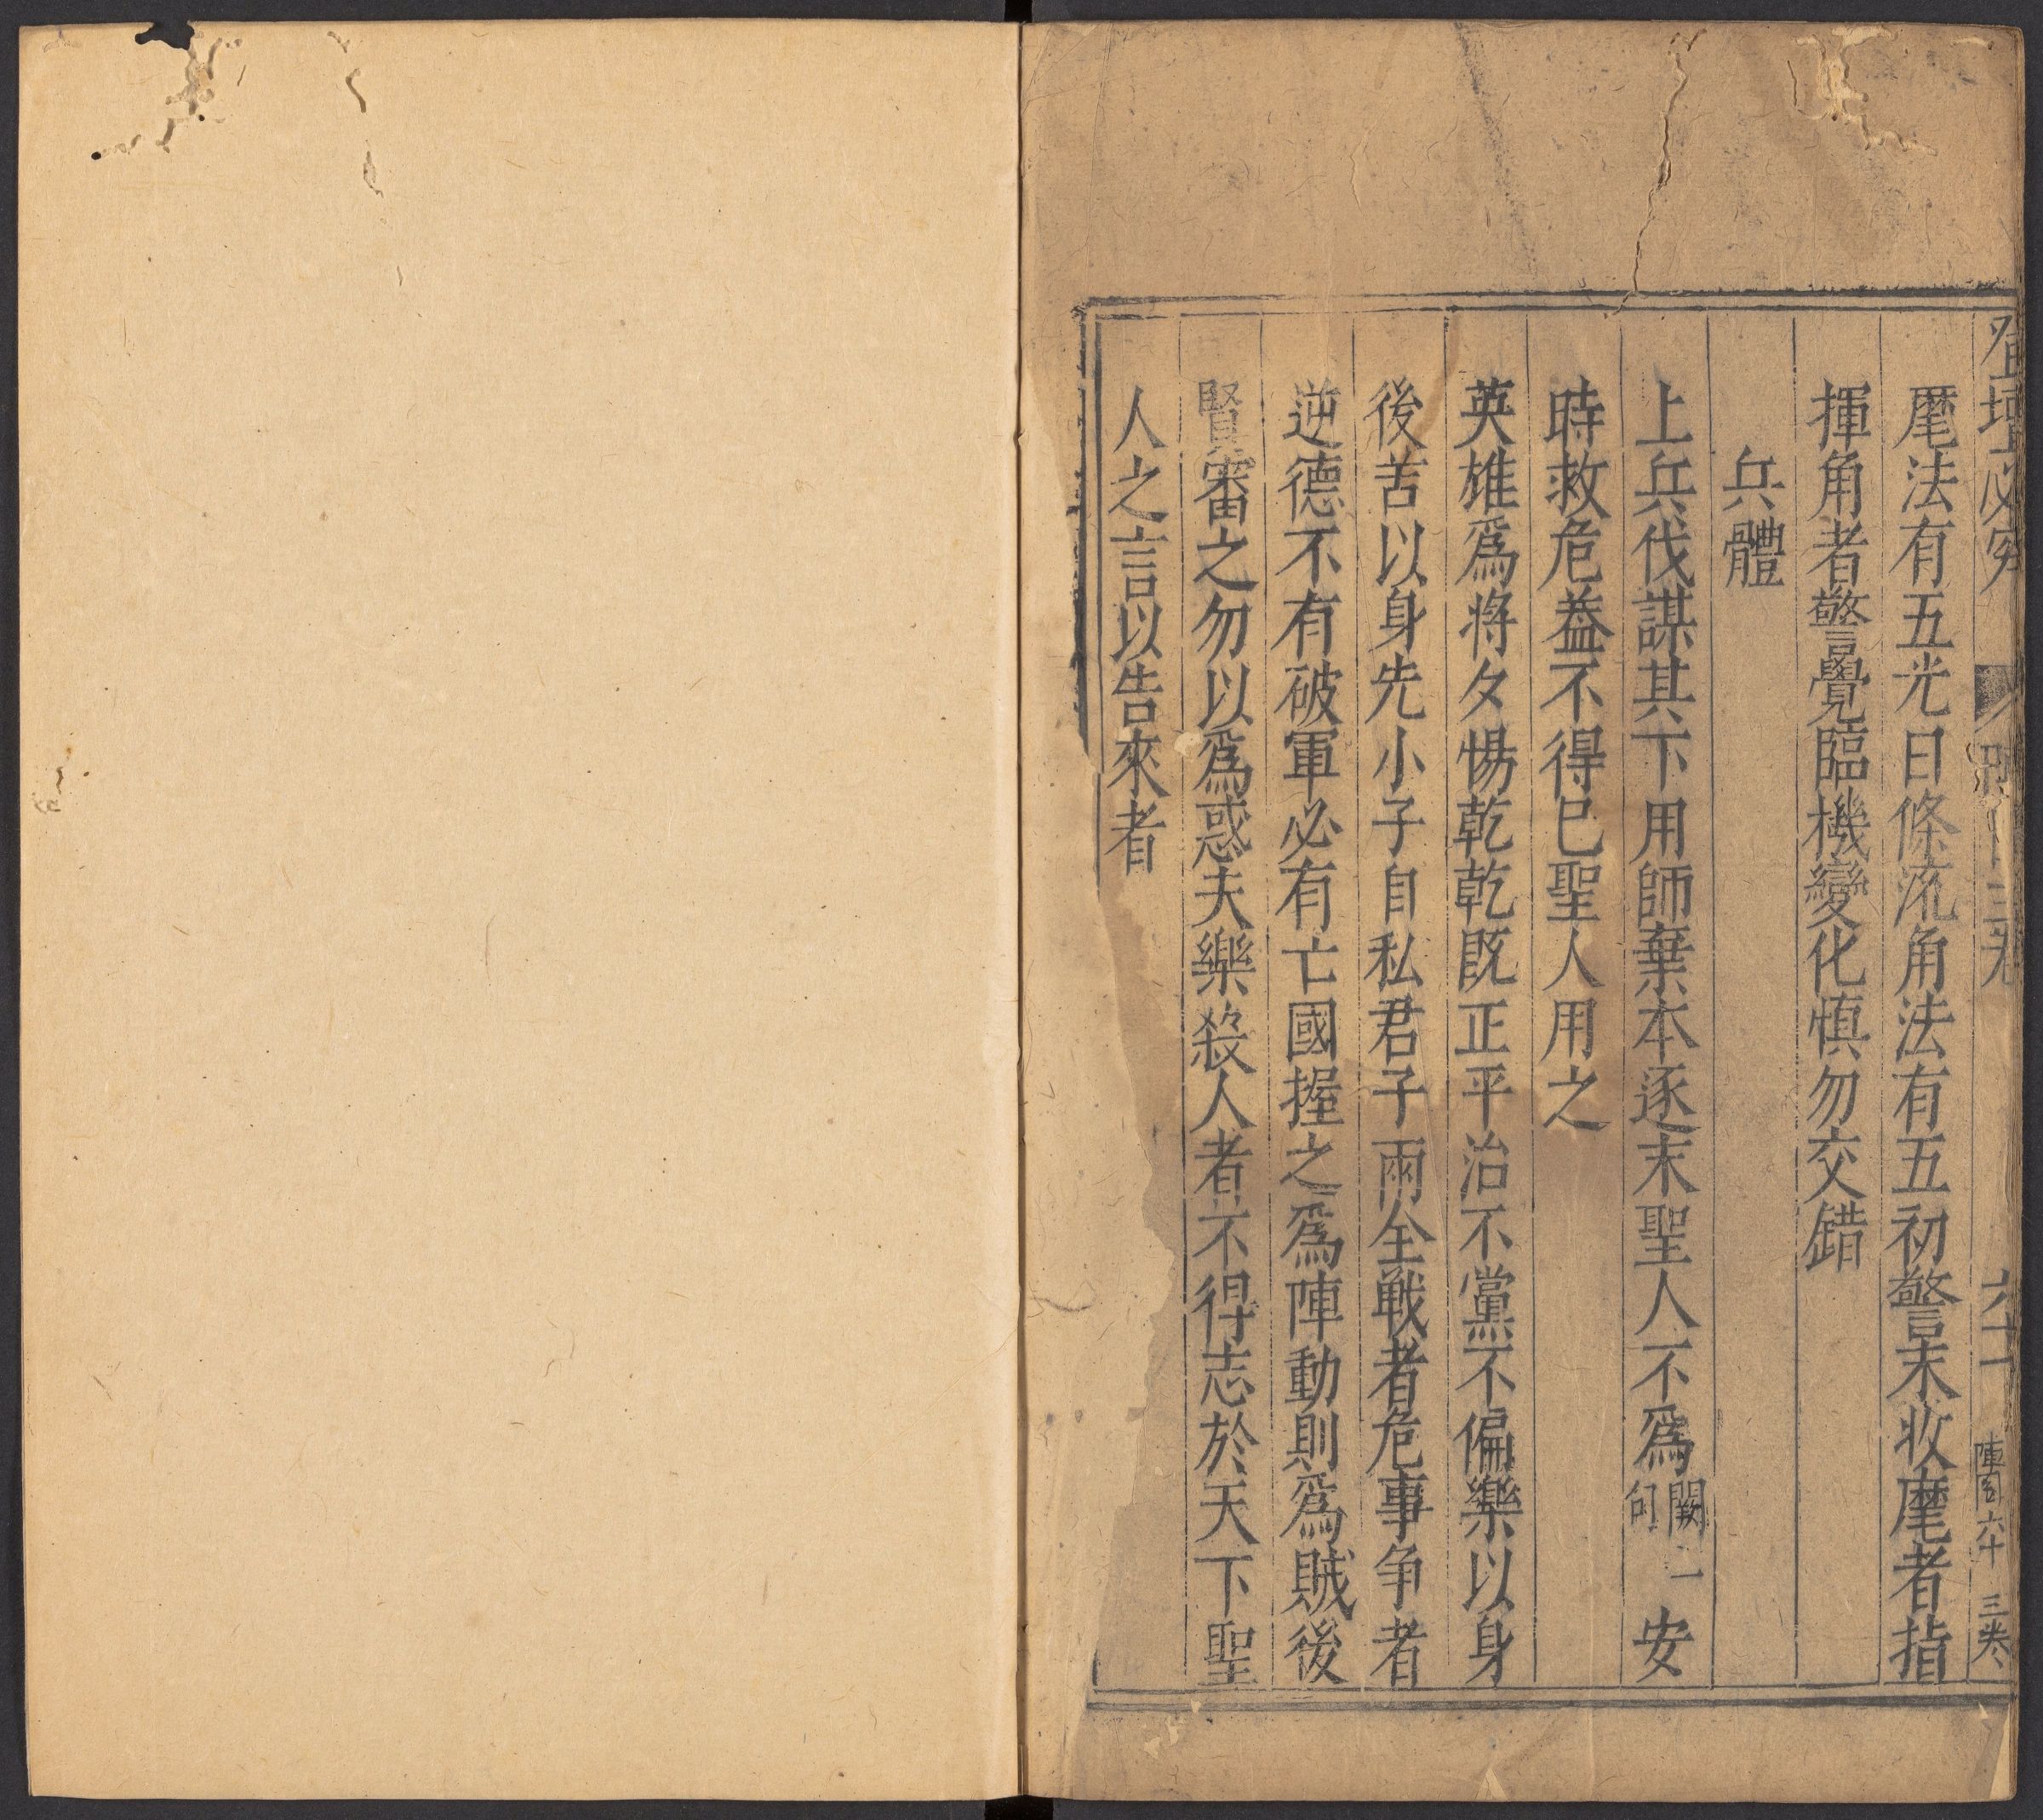 登壇必究
三卷
六十一
陣圖六十
三卷
麾法有五光曰條流角法有五初警末收麾者指
揮角者警覺臨機變化慎勿交錯
兵體
上兵伐謀其下用師棄本逐末聖人不爲闕一句安
時救危葢不得巳聖人用之
英雄爲將夕惕乾乾既正平治不黨不偏樂以身
後苦以身先小子自私君子兩全戰者危事争者
逆德不有破軍必有亡國握之爲陣動則爲賊後
賢審之勿以爲惑夫樂殺人者不得志於天下聖
人之言以告來者